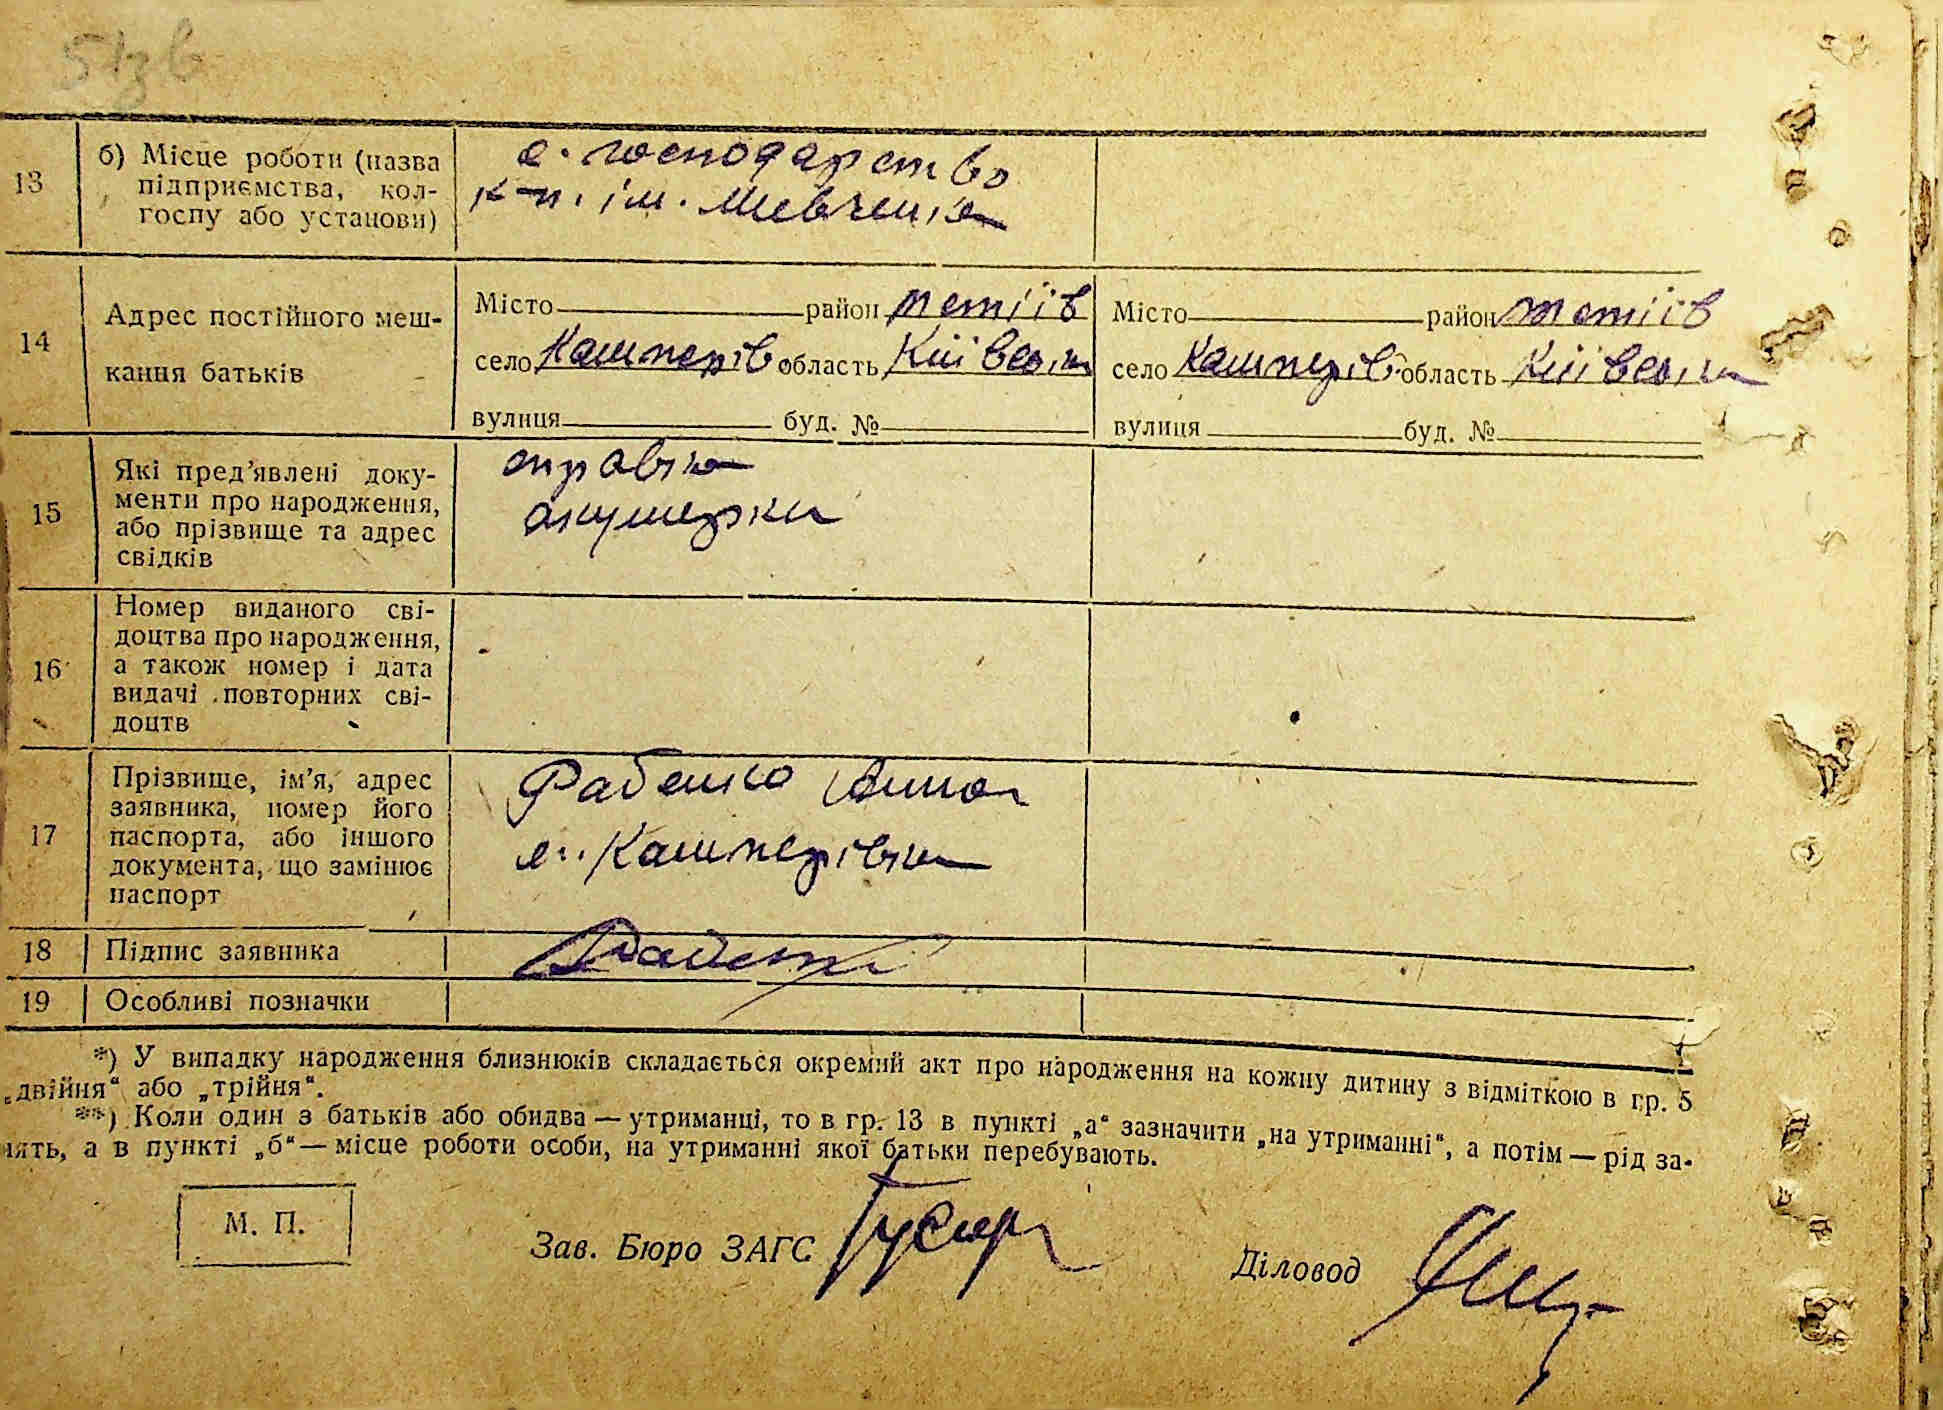 51зв
13 б) Місце роботи (назва підприємства, кол-госпу або установи)
с. господарство
к-п. ім. Шевченка
14 Адрес постійного меш-
кання батьків
Місто район Тетіїв
село Кашперів область Київськ
вулиця буд. №
Місто район Тетіїв
село Кашперів область Київськ
вулиця буд. №
15 Які пред’явлені доку-
менти про народження,
або прізвище та адрес
свідків
справка
акушерки
16 Номер виданого сві-
доцтва про народження,
а також номер і дата
видачі повторних сві-
доцтв
17 Прізвище, ім’я, адрес
заявника, номер його
паспорта, або іншого
документа, що замінює
паспорт
Фабенко Анна
с. Кашперівка
18 Підпис заявника
19 Особливі позначки
*) У випадку народження близнюків складається окремий акт про народження на кожну дитину з відміткою в гр. 5
„двійня“ або „трійня“.
**) Коли один з батьків або обидва — утриманці, то в гр. 13 в пункті „а“ зазначити „на утриманні“, а потім — рід за-
нять, а в пункті „б“ — місце роботи особи, на утриманні якої батьки перебувають.
М. П.
Зав. Бюро ЗАГС
Діловод